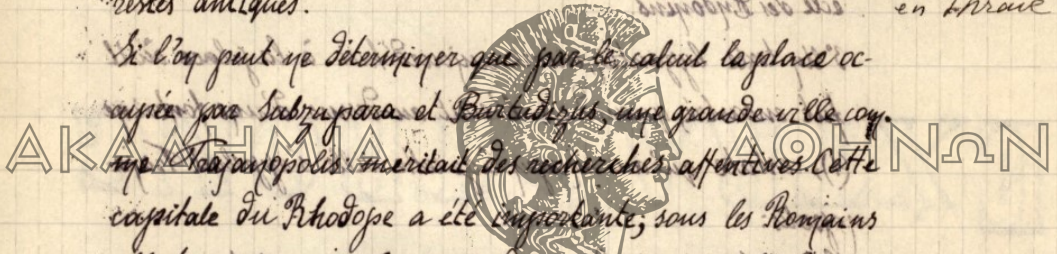 restes antiques.
en Thrace
Si l'on peut ne déterminer que par le calcul la place oc-
cupée par Subzupara et Burtudizus, une grande ville com-
me Trajanopolis méritait des recherches attentives. Cette
capitale du Rhodope a été importante; sous les Romains
ΑΚΑΔΗΜΙΑ ΑΘΗΝΩΝ